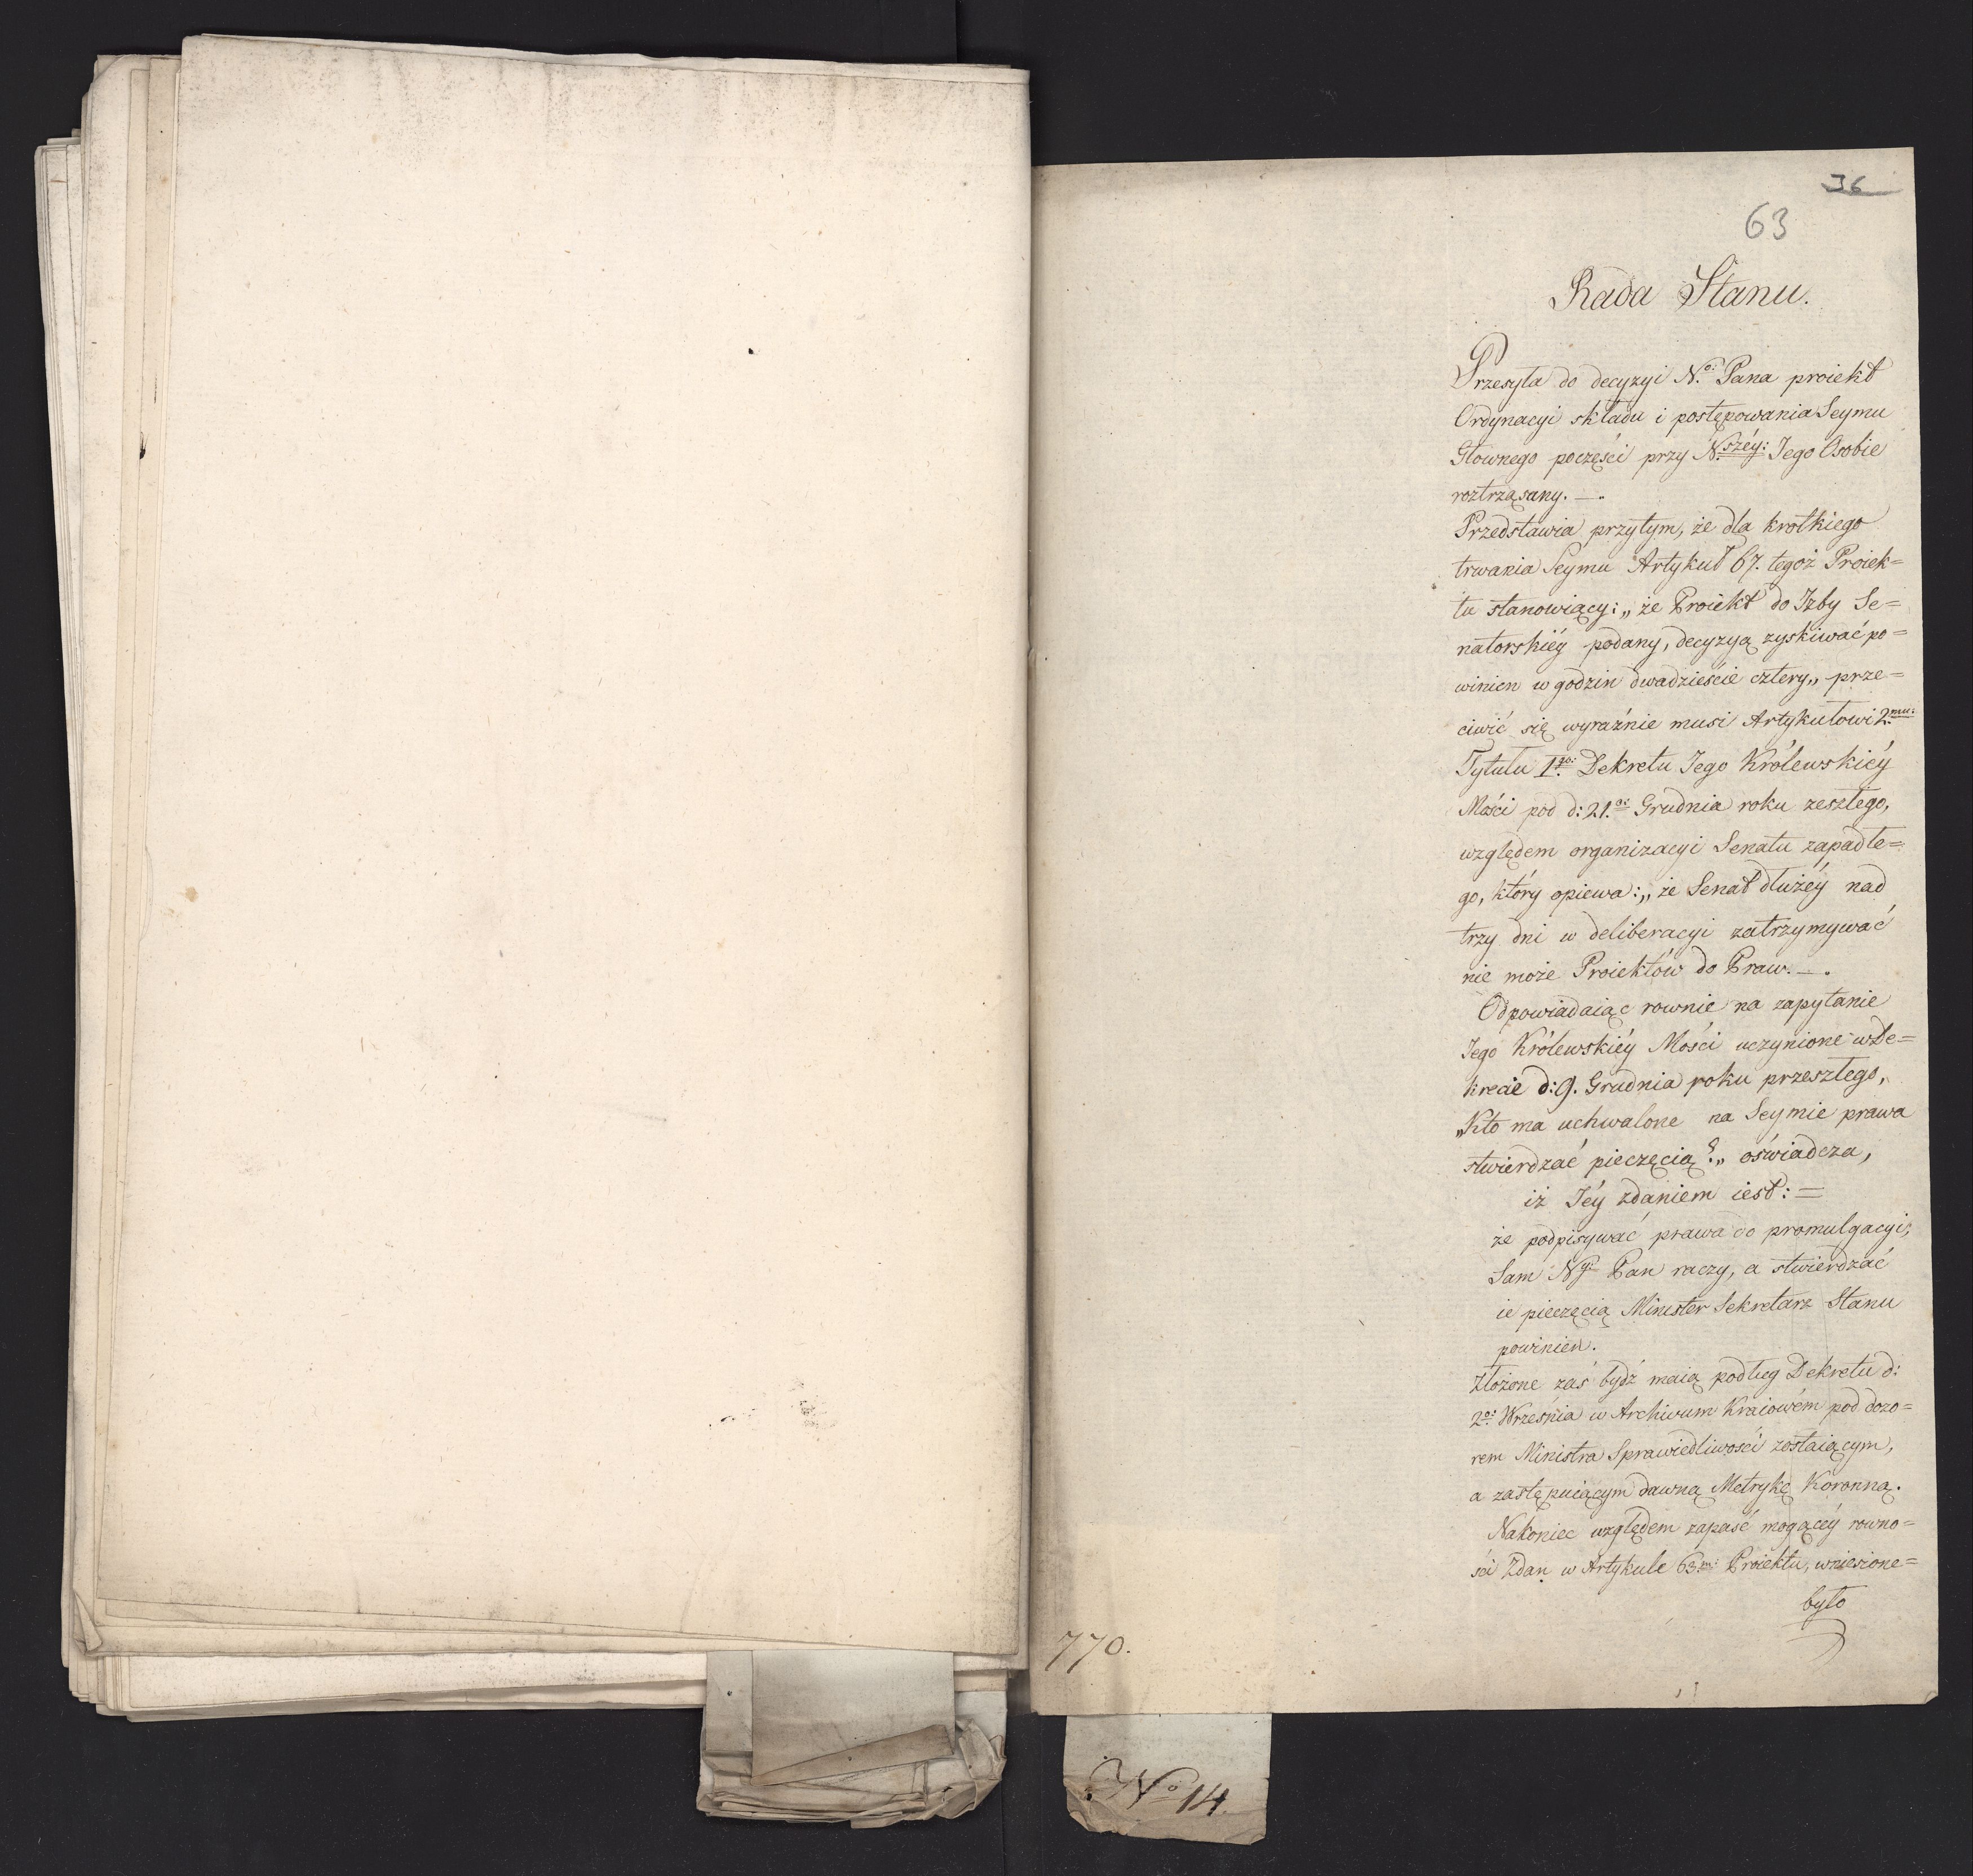 36
63
Rada Stanu.
Przesyła do decyzyi N.o: Pana proiekt
Ordynacyi składu i postępowania Seymu
Głownego poczęści przy N.széy: Jego Osobie
roztrząsany. —.
Przedstawia przytym, że dla krotkiego
trwania Seymu Artykuł 67. tegoż Proiek=
tu stanowiący: „że Proiekt do Izby Se=
natorskiéy podany, decyzyą zyskiwać po=
winien w godzin dwadzieście cztery„ prze=
ciwić się wyraźnie musi Artykułowi 2.mu:
Tytułu 1.go: Dekretu Jego Królewskiéy
Mości pod d: 21.o: Grudnia roku zeszłego,
względem organizacyi Senatu zapadłe=
go, który opiewa: „że Senat dłużéy nad
trzy dni w deliberacyi zatrzymywać
nie może Proiektów do Praw. —.
Odpowiadaiąc rownie na zapytanie
Jego Królewskiéy Mości uczynione w De=
krecie d: 9. Grudnia roku przeszłego,
„Kto ma uchwalone na Seymie prawa
stwierdzać pieczęcią?„ oświadcza,
iż Jéy zdaniem iest: =
że podpisywać prawa do promulgacyi,
Sam Ny: Pan raczy, a stwierdzać
ie pieczęcią Minister Sekretarz Stanu
powinien.
Złożone zaś bydź maią podług Dekretu d:
2.o: Września w Archiwum Kraiowém pod dozo=
rem Ministra Sprawiedliwości zostaiącym,
a zastępuiącym dawną Metrykę Koronną.
Nakoniec względem zapaść mogącéy rowno=
ści Zdan w Artykule 63.m: Proiektu, wniesione=
było
770.
No 14.